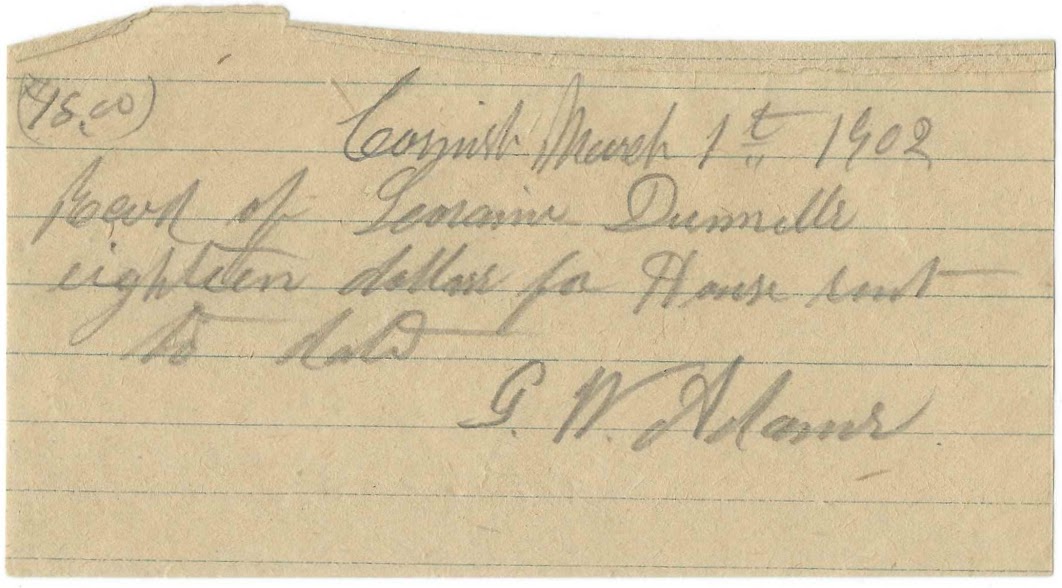 (18.00)
Cornish March 1st 1902
Recvd of Loraine Dunnells
eighteen dollars for House rent
to date
G. W. Adams